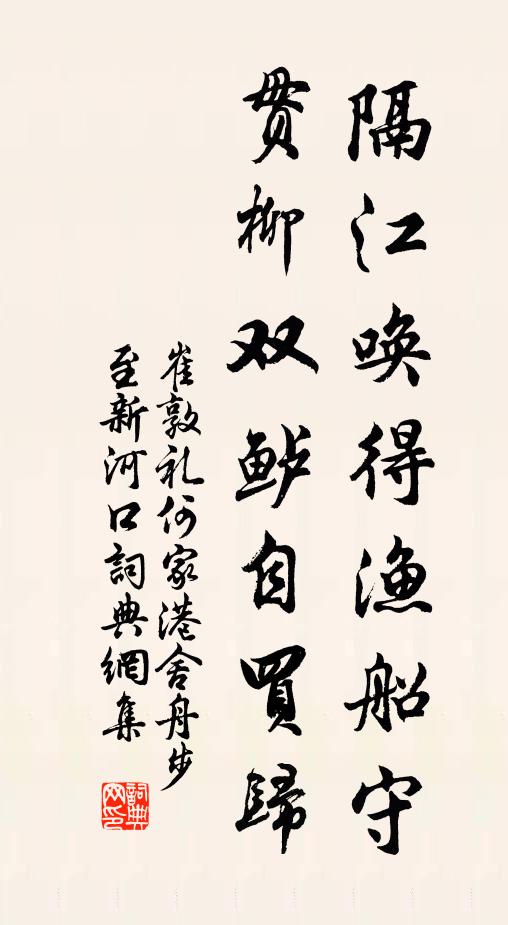 隔江唤得渔船守
贯柳双鲈自買歸
崔敦礼何家港舍舟步
至新河口詞典網集
詞典
网印